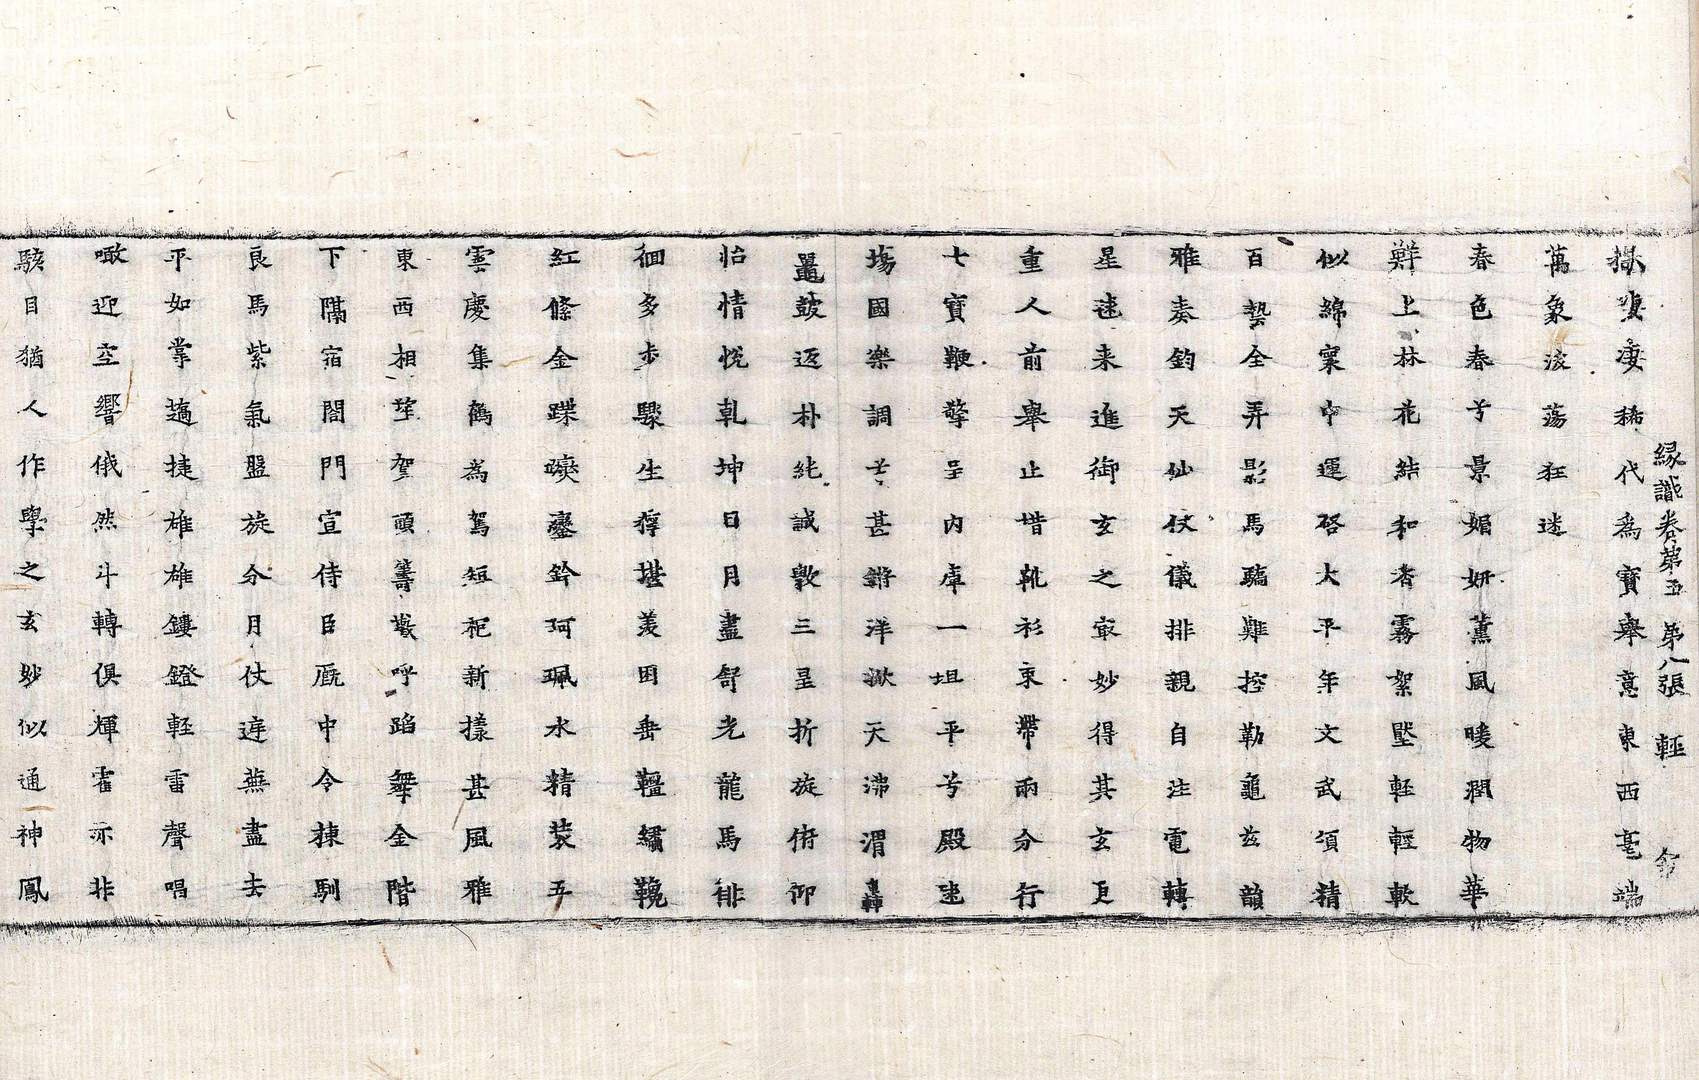 緣識卷第五 第八張 輕
凄稀代為寶舉意東西毫端
萬象波蕩狂迷
春色春兮景媚妍薰風暖潤物華
鮮上林花結和香霧絮墜輕輕軟
似綿窠中運啓太平年文武須精
百藝全弄影馬驕難控勒龜茲韻
雅奏鈞天仙仗儀排親自注電轉
星速来進御玄之㝡妙得其玄叵
重人前舉止堦靴衫束帶兩分行
七寶鞭擎呈內庫一坦平兮殿速
塲國樂調甚鏘洋激天沸渭轟
鼉鼓返朴純誠數三呈折旋俯仰
怡情悅乹坤日月盡舒光龍馬徘
徊多步驟生獰堪羨困垂韁繡鞔
紅絛金蹀㺉鑾鈴珂珮水精裝五
雲慶集鶴為駕短袍新㨾甚風雅
東西相望架頭籌叫呼蹈舞金階
下隔宿閤門宣侍臣厩中令揀馴
良馬紫氣盤旋分月仗遊燕盡去
平如掌趫捷雄雄鏤鐙輕雷聲唱
噉迎空響俄然斗轉俱輝霍亦非
駭目猶人作學之玄妙似通神鳳